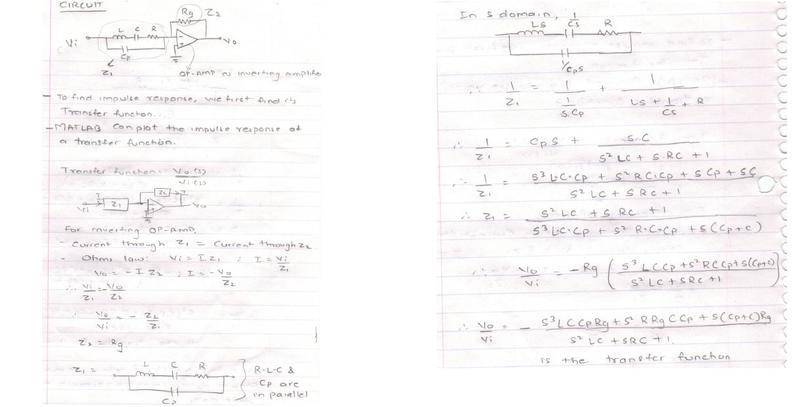 CIRCUIT
Rg Z2
L C R
Vi Vo
Cp
Z1
OP-AMP as inverting amplifier
- To find impulse response, we first find its
Transfer function.
- MATLAB can plot the impulse response of
a transfer function.
Transfer function: Vo(s)/Vi(s)
Z2
Vi Z1 Vo
For inverting OP-AMP,
- Current through Z1 = Current through Z2
- Ohms law: Vi = I Z1 ; I = Vi/Z1
Vo = - I Z2 ; I = - Vo/Z2
∴ Vi/Z1 = - Vo/Z2
∴ Vo/Vi = - Z2/Z1
Z2 = Rg
L C R
Z1 =
Cp
R-L-C &
Cp are
in parallel
In S domain,
LS 1/CS R
1/CpS
∴ 1/Z1 = 1/(1/S.Cp) + 1/(LS + 1/CS + R)
∴ 1/Z1 = CpS + S.C/(S² LC + S RC + 1)
∴ 1/Z1 = (S³ L·C·Cp + S² RC·Cp + S Cp + SC)/(S² LC + S RC + 1)
∴ Z1 = (S² LC + S RC + 1)/(S³ L·C·Cp + S² R·C·Cp + S(Cp+C))
∴ Vo/Vi = -Rg ( (S³ LCCp + S² RCCp + S(Cp+C))/(S² LC + SRC + 1) )
∴ Vo/Vi = - (S³ LCCpRg + S² RRgCCp + S(Cp+C)Rg)/(S² LC + SRC + 1)
is the transfer function